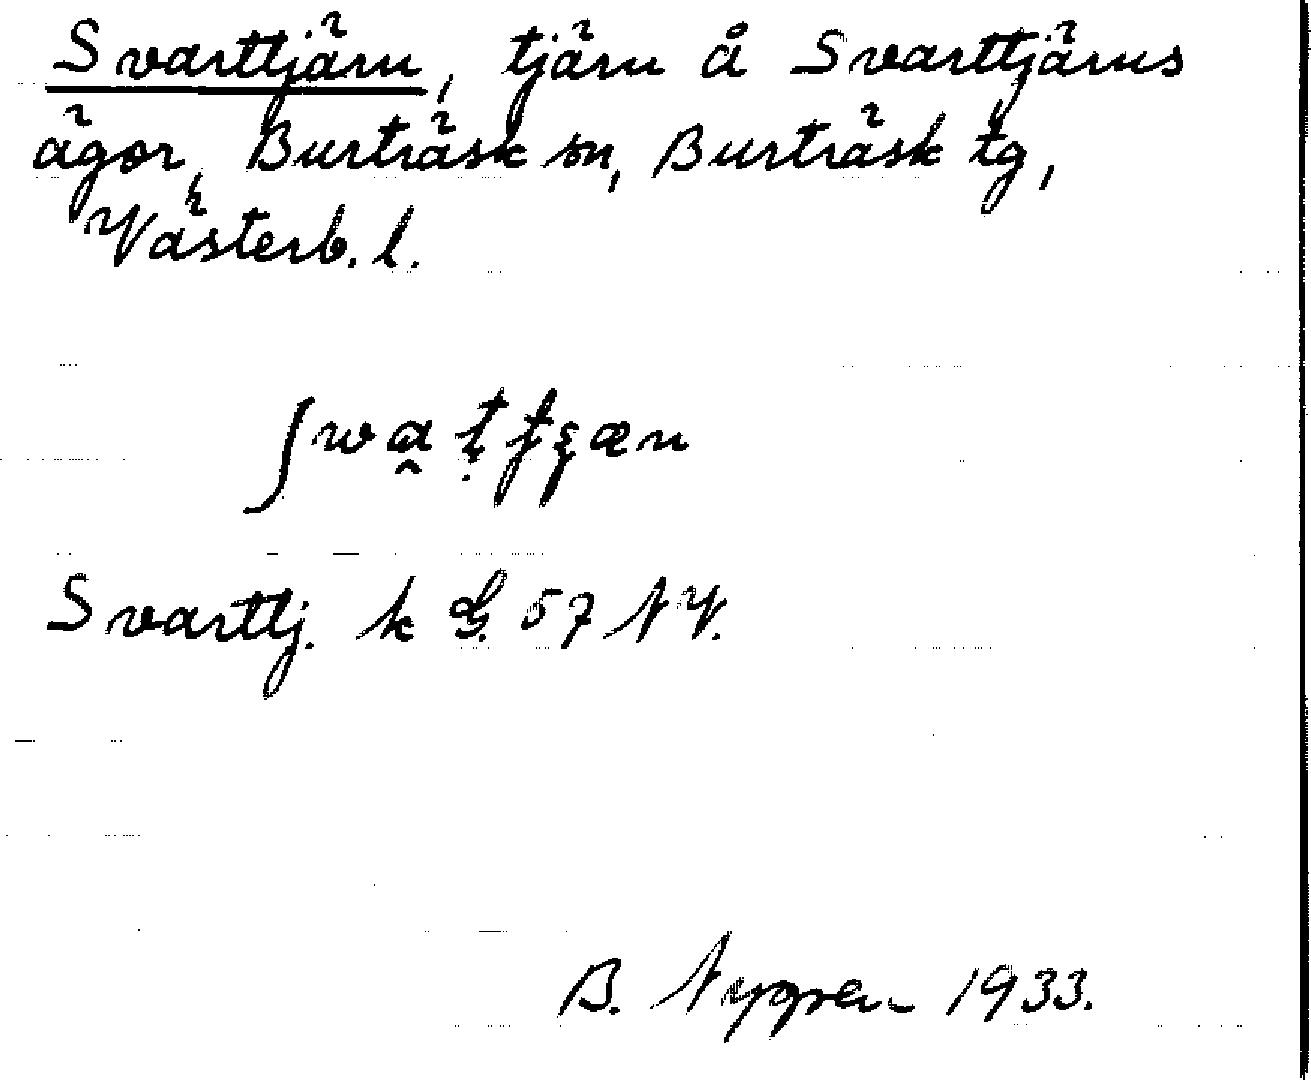 Svarttjärn, tjärn å Svarttjärns
ägor, Burträsk sn, Burträsk tg,
Västerb. l.
Svarttj. k G. 57 NV.
B. Nygren 1933.